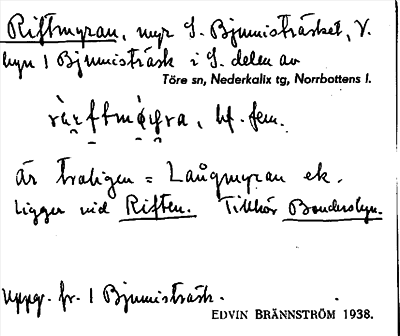 Riftmyran, myr S. Bjumisträsket, V.
byn 1 Bjumisträsk i S. delen av
Töre sn, Nederkalix tg, Norrbottens l.
bf. fem.
är troligen = Laŭgmyran ek.
ligger vid Riften. Tillhör Bondersbyn.
Uppg. fr. 1 Bjumisträsk.
EDVIN BRÄNNSTRÖM 1938.